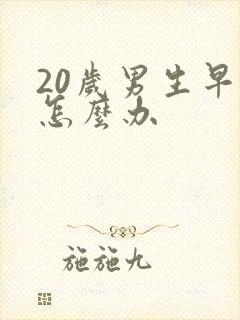 20歲男生早
怎麼办
施施九